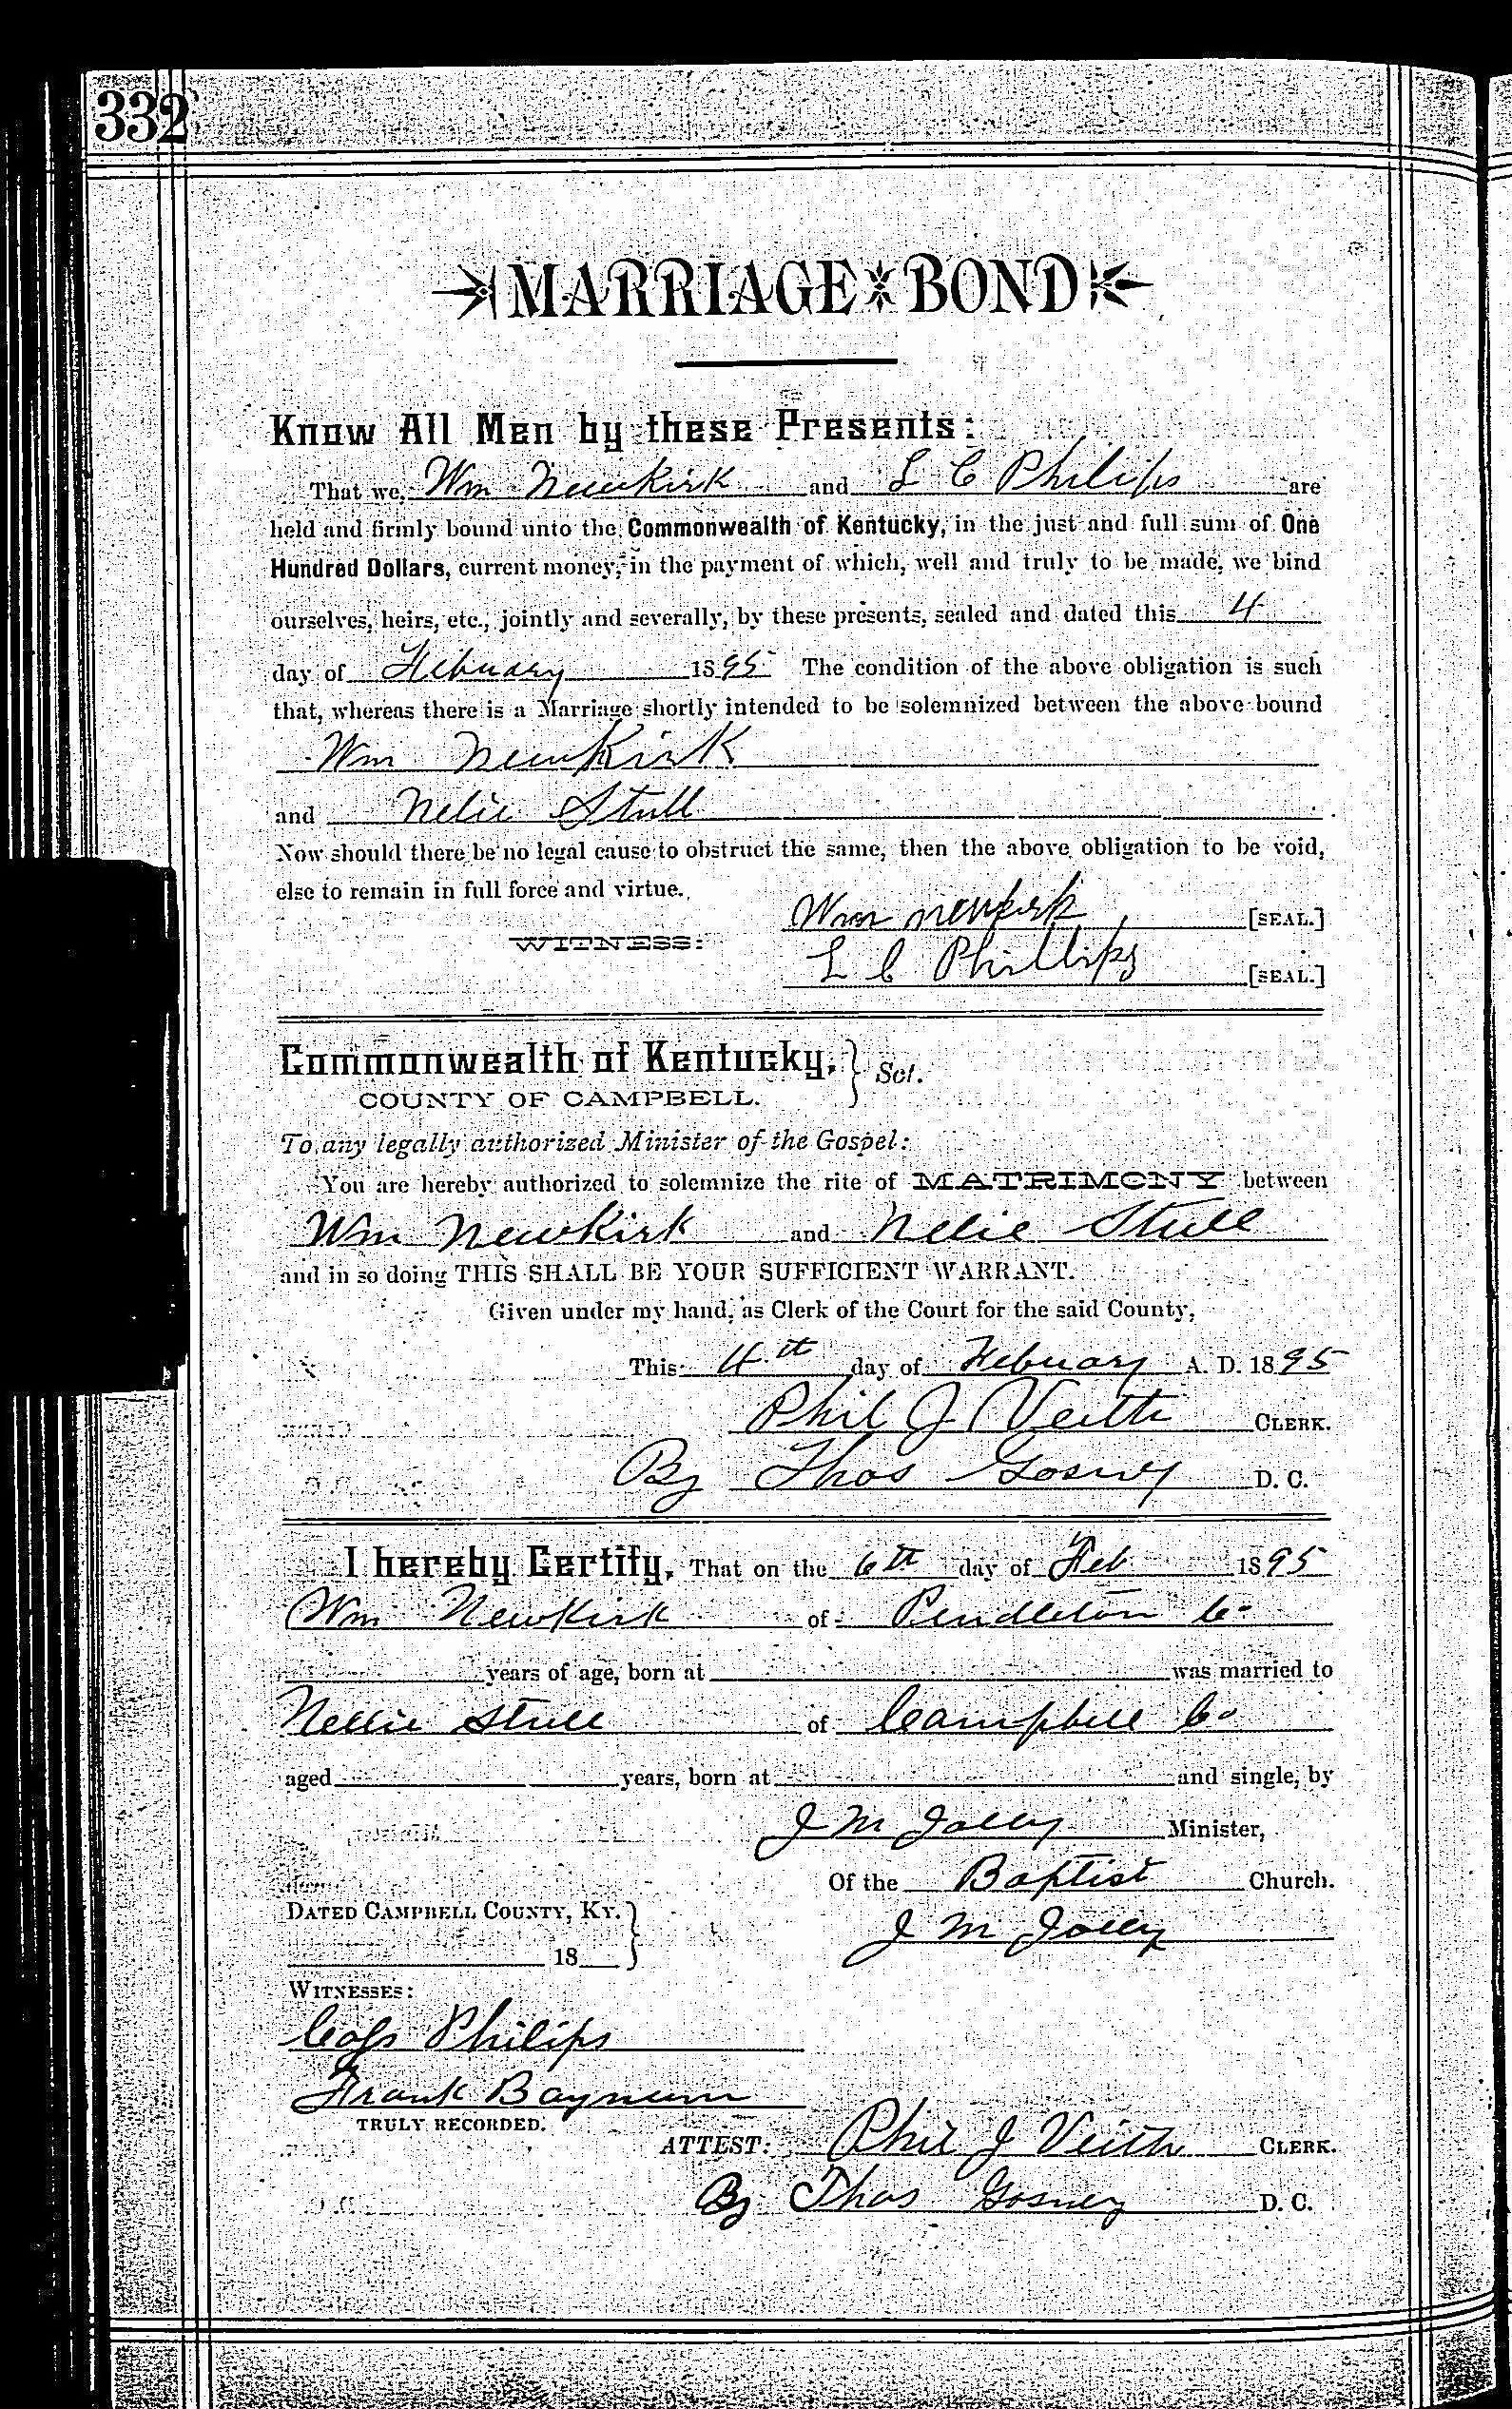 332
MARRIAGE BOND
Know All Men by these Presents:
That we, Wm Newkirk and L C Philips are
held and firmly bound unto the Commonwealth of Kentucky, in the just and full sum of One
Hundred Dollars, current money, in the payment of which, well and truly to be made, we bind
ourselves, heirs, etc., jointly and severally, by these presents, sealed and dated this 4
day of Febuary 1895 The condition of the above obligation is such
that, whereas there is a Marriage shortly intended to be solemnized between the above bound
Wm Newkirk
and Nelie Stull
Now should there be no legal cause to obstruct the same, then the above obligation to be void,
else to remain in full force and virtue.
Wm newkirk [SEAL.]
WITNESS:
L C Phillips [SEAL.]
Commonwealth of Kentucky, } Sct.
COUNTY OF CAMPBELL.
To any legally authorized Minister of the Gospel:
You are hereby authorized to solemnize the rite of MATRIMONY between
Wm Newkirk and Nelie Stull
and in so doing THIS SHALL BE YOUR SUFFICIENT WARRANT.
Given under my hand, as Clerk of the Court for the said County,
This 4th day of Febuary A. D. 1895
Phil J Veith CLERK.
By Thos Gosney D. C.
I hereby Certify, That on the 6th day of Feb 1895
Wm Newkirk of Pendleton Co
years of age, born at was married to
Nellie Stull of Campbell Co
aged years, born at and single, by
J M Jolly Minister,
Of the Baptist Church.
DATED CAMPBELL COUNTY, KY. }
J M Jolly
18
WITNESSES:
Philips
Frank Baynum
TRULY RECORDED.
ATTEST: Phil J Veith CLERK.
By Thos Gosney D. C.